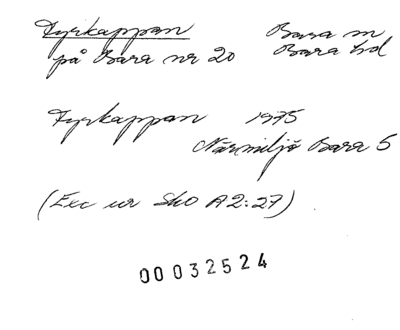 Fyrkappan Bara sn
på Bara nr 20 Bara hd
Fyrkappan 1975
Närmiljö Bara 5
(Exc ur Sko A2:27)
00032524